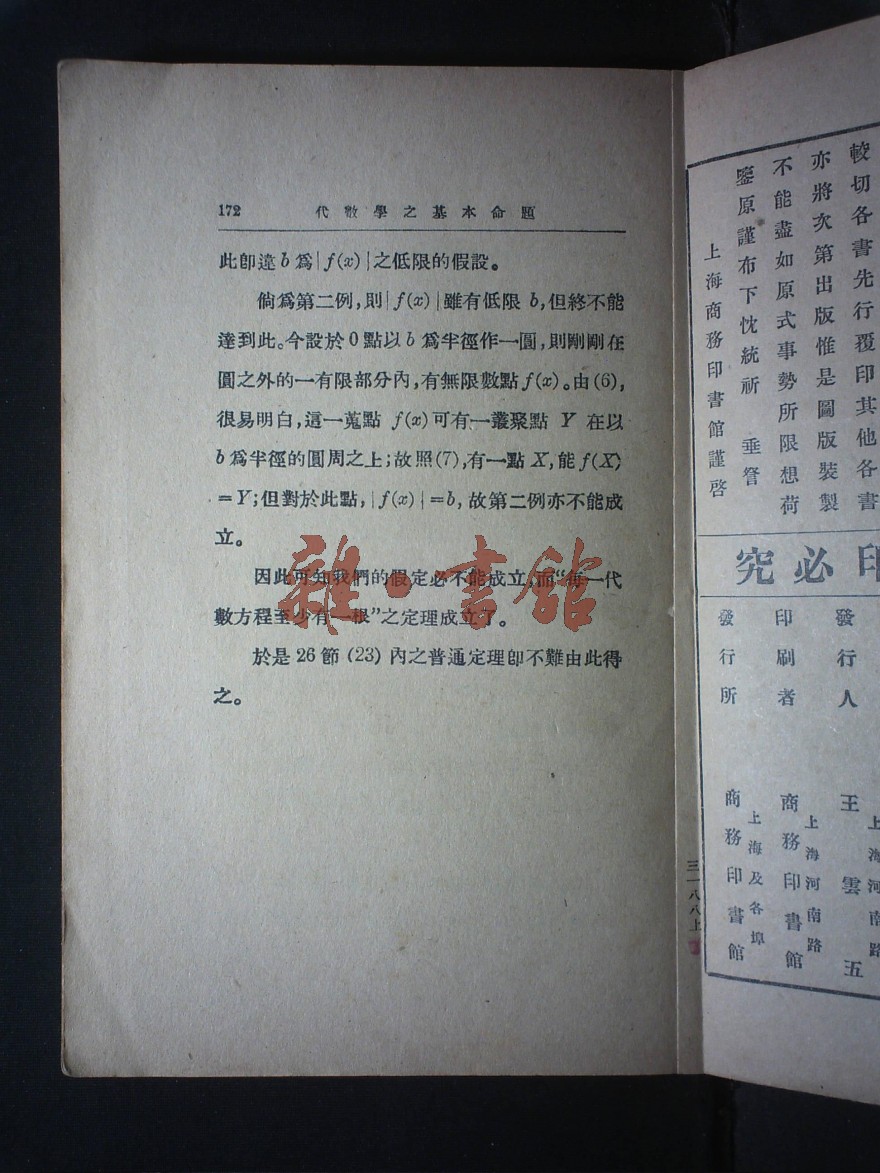 172 代數學之基本命題
此卽違 b 爲 | f(x) | 之低限的假設。
倘爲第二例，則 | f(x) | 雖有低限 b，但終不能
達到此。今設於 0 點以 b 爲半徑作一圓，則剛剛在
圓之外的一有限部分內，有無限數點 f(x)。由 (6)，
很易明白，這一蒐點 f(x) 可有一叢聚點 Y 在以
b 爲半徑的圓周之上；故照 (7)，有一點 X，能 f(X)
=Y；但對於此點，| f(x) | =b，故第二例亦不能成
立。
因此可知我們的假定必不能成立，而“每一代
數方程至少有一根”之定理成立了。
於是 26 節 (23) 內之普通定理卽不難由此得
之。
雜·書館
較切各書先行覆印其他各書
亦將次第出版惟是圖版裝製
不能盡如原式事勢所限想荷
鑒原謹布下忱統祈 垂詧
上海商務印書館謹啓
印必究
發行人 王雲五
上海河南路
印刷者 商務印書館
上海河南路
發行所 商務印書館
上海及各埠
三一八八上